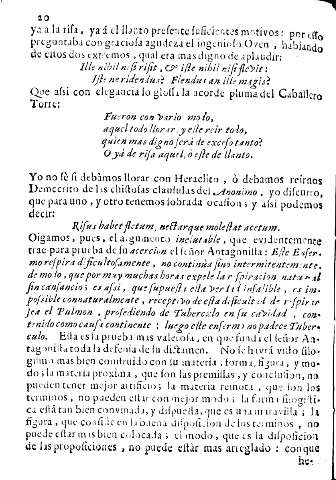 20
ya à la risa, ya à el llanto presente suficientes motivos: por esso
preguntaba con graciosa agudeza el ingenioso Oven, hablando
de estos dos extremos, qual era mas digno de aplaudir:
Ille nihil nisi risit, & iste nihil nisi flevit:
Iste ne ridendus? Flendus an ille magis?
Que asi con elegancia lo glossa la acorde pluma del Caballero
Torre:
Fueron con vario modo,
aquel todo llorar, y este reir todo,
quien mas digno serà de excesso tanto?
O yà de risa aquel, ò este de llanto.
Yo no sè si debamos llorar con Heraclito, ò debamos reirnos
Democrito de las chistosas clausulas del Anonimo, yo discurro,
que para uno, y otro tenemos sobrada ocasion; y asi podemos
decir:
Risus habet fletum, nectarque molestat acetum.
Oigamos, pues, el argumento ineluctable, que evidentemente
trae para prueba de su asercion el señor Antagonilla: Este Enfer-
mo respira dificultosamente, no continuà sino intermitentemente,
de modo, que por muy muchas horas expele la respiracion natural
sin cansancio; es asi, que supuesta esta verdad infalible, es im-
possible connaturalmente, receptivo de esta dificultad de respirar
sea el Pulmon, procediendo de Tuberculo en su cavidad, con-
tenido como causa continente: luego este enfermo no padece Tuber-
culo. Esta es la prueba mas valerosa, en que funda el señor An-
tagonilla toda la defensa de su dictamen. No se havrà visto silo-
gismo mas bien construido con su materia, forma, figura, y mo-
do; la materia proxima, que son las premisas, y conclusion, no
pueden tener mejor artificio; la materia remota, que son los
terminos, no pueden estar con mejor modo; la forma silogisti-
ca està tan bien convinada, y dispuesta, que es una maravilla; la
figura, que consiste en la buena disposicion de los terminos, no
puede estar mas bien colocada; el modo, que es la disposicion
de las proposiciones, no puede estàr mas arreglado: conque
he-